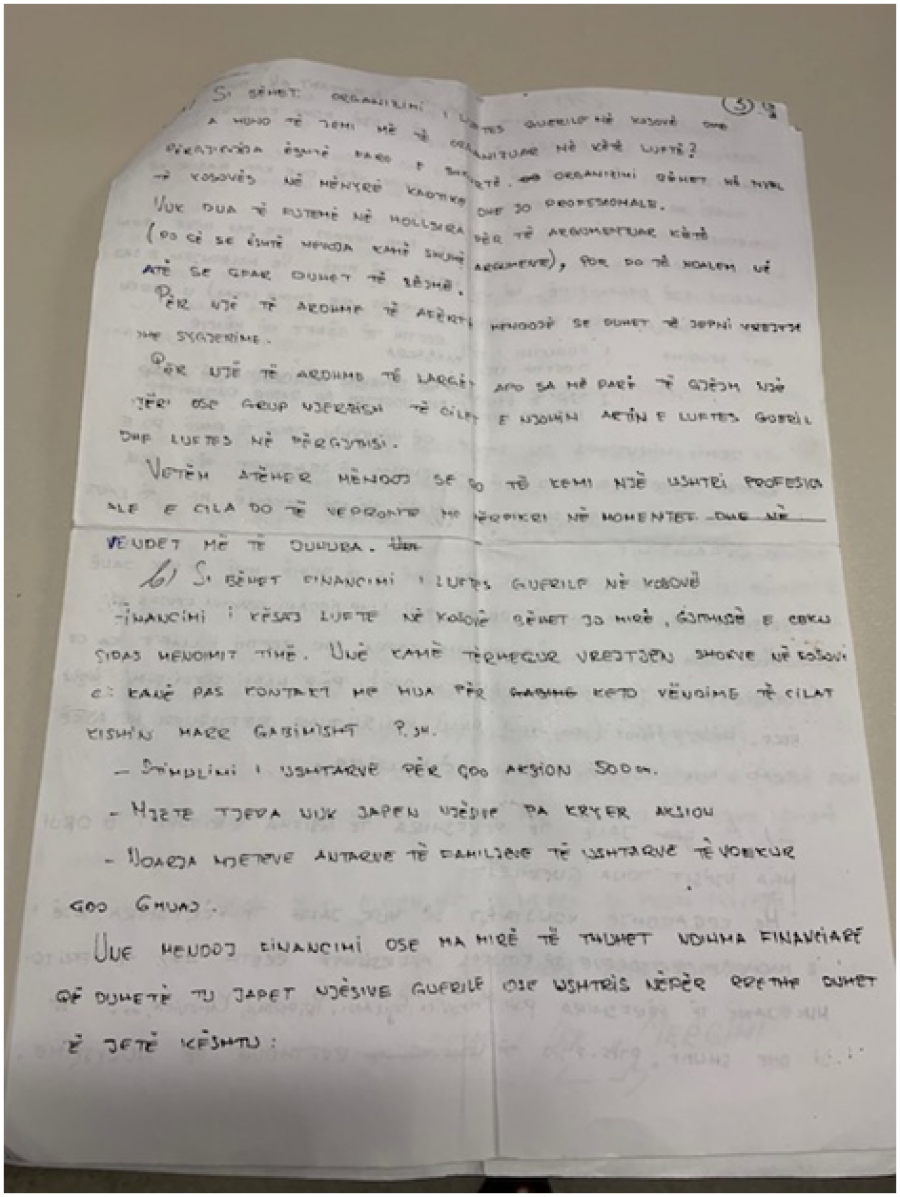 3
SI BËHET ORGANIZIMI I LUFTES GUERILE NË KOSOVË DHE
A MUND TË JEMI MË TË ORGANIZUAR NË KËTË LUFTË?
PËRGJIGJJA ËSHTË ORGANIZIMI BËHET NË
TË KOSOVËS NË MËNYRË KAOTIKE DHE JO PROFESIONALE.
NUK DUA TË FUTEMË NË HOLLSIRA PËR TË ARGUMENTUAR KËTË
(PO QË SE ËSHTË NEVOJA KAMË SHUMË ARGUMENTE), POR DO TË NDALEM NË
ATË SE ÇFAR DUHET TË BËJMË.
PËR NJË TË ARDHME TË AFËRTË MENDOJË SE DUHET TË JEPNI VREJTJE
DHE SYGJERIME.
PËR NJË TË ARDHME TË LARGËT APO SA MË PARË TË GJEJM NJË
JËRI OSE GRUP NJERËZISH TË CILËT E NJOHIN ARTIN E LUFTES GUERIL
DHE LUFTES NË PËRGJTHSI.
VETËM ATËHER MËNDOJ SE DO TË KEMI NJË USHTRI PROFESIO
ALE E CILA DO TË VEPRONTE ME PËRPIKRI NË MOMENTET DHE NË
VENDET MË TË DUHURA.
b) SI BËHET FINANCIMI I LUFTES GUERILE NË KOSOVË
FINANCIMI I KËSAJ LUFTE NË KOSOVË BËHET JO MIRË, E
SIDAS MENDIMIT TIMË. UNË KAMË TËRHEQUR VREJTJEN SHOKVE NË KOSOVË
Ç: KANË PAS KONTAKT ME MUA PËR GABIME KETO VËNDIME TË CILAT
KISHIN MARR GABIMISHT P.SH.
- STIMULIMI I USHTARVE PËR ÇDO AKSION 500
- MJETE TJERA NUK JAPEN NJËSIVE PA KRYER AKSION
- NDARJA MJETEVE ANTARVE TË FAMILJEVE TË USHTARVE TË VDEKUR
ÇDO 6MUAJ.
UNE MENDOJ FINANCIMI OSE MA MIRË TË THUHET NDIHMA FINANCIARE
QË DUHETË TU JAPET NJËSIVE GUERILE OSE USHTRIS NËPËR RRETHE DUHET
TË JETË KËSHTU: